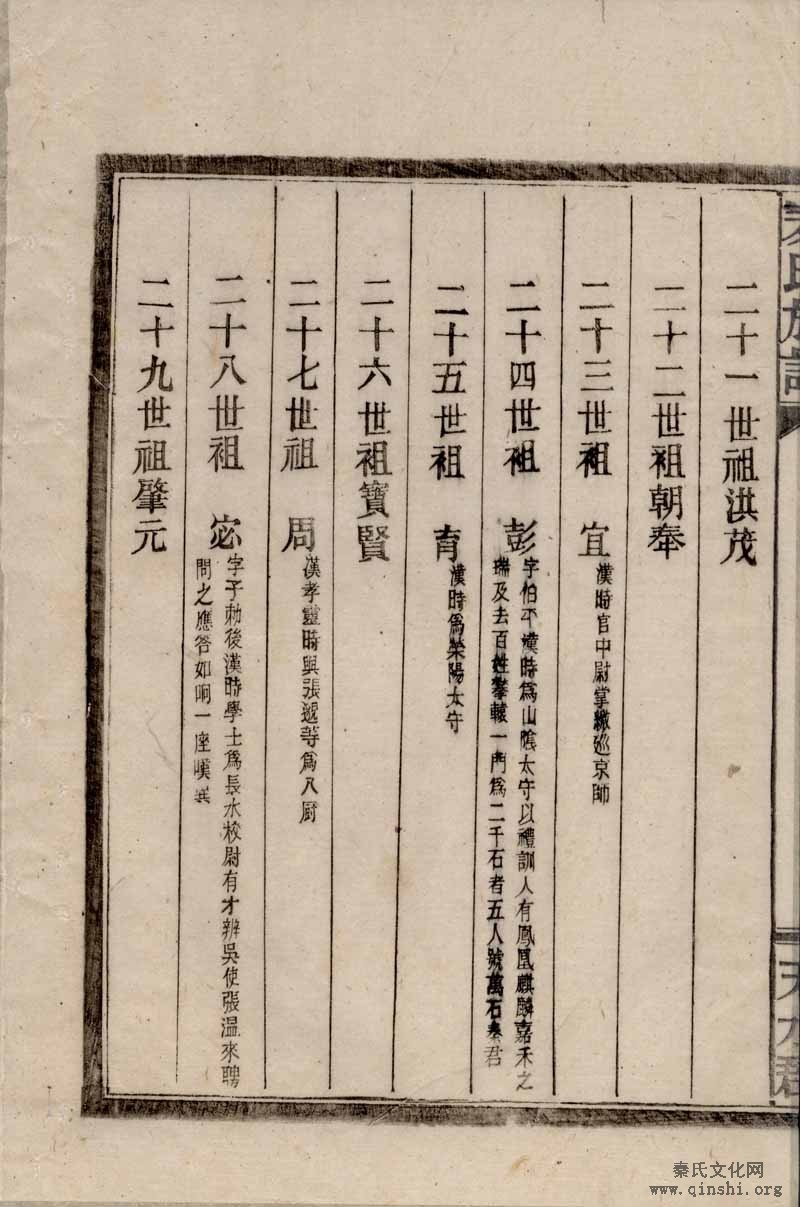 秦氏族譜
天水郡
二十一世祖洪茂
二十二世祖朝奉
二十三世祖 宜
漢時官中尉掌繳巡京師
二十四世祖 彭
字伯平漢時爲山陰太守以禮訓人有鳳凰麒麟嘉禾之
瑞及去百姓攀轅一門爲二千石者五人號萬石秦君
二十五世祖 育
漢時爲滎陽太守
二十六世祖寶賢
二十七世祖 周
漢孝靈時與張邈等爲八厨
二十八世祖 宓
字子勑後漢時學士爲長水校尉有才辨吳使張温來聘
問之應答如响一座嘆
二十九世祖肇元
秦氏文化网
www.qinshi.org